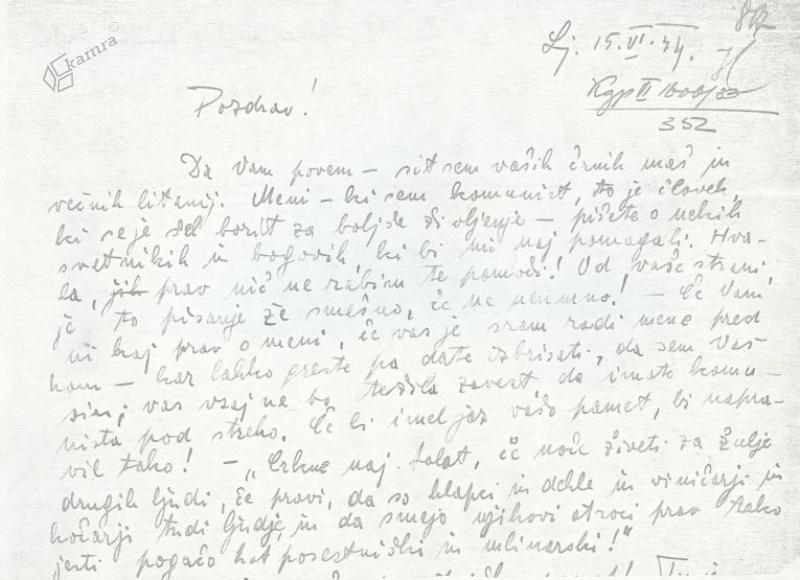 kamra
812
Lj. 15. VI. 34.
Kgp II 1000/33
352
Pozdrav!
Da Vam povem – sit sem vaših črnih maš in
večnih litanij. Meni – ki sem komunist, to je človek,
ki se je šel borit za boljše življenje – pišete o nekih
svetnikih in bogovih, ki bi mi naj pomagali. Hva-
la, jih prav nič ne rabim te pomoči! Od vaše strani
je to pisanje že smešno, če ne neumno! – Če Vam
ni kaj prav o meni, če vas je sram radi mene pred
kom – kar lahko greste pa date izbrisati, da sem Vaš
sin; vas vsaj ne bo težila zavest da imate komu-
nista pod streho. Če bi imel jaz vašo pamet, bi napra-
vil tako! – „Crkne naj falot, če noče živeti za žulje
drugih ljudi, če pravi, da so hlapci in dekle in viničarji in
kočarji tudi ljudje, in da smejo njihovi otroci prav tako
jesti pogačo kot posestniški in mlinarski!"